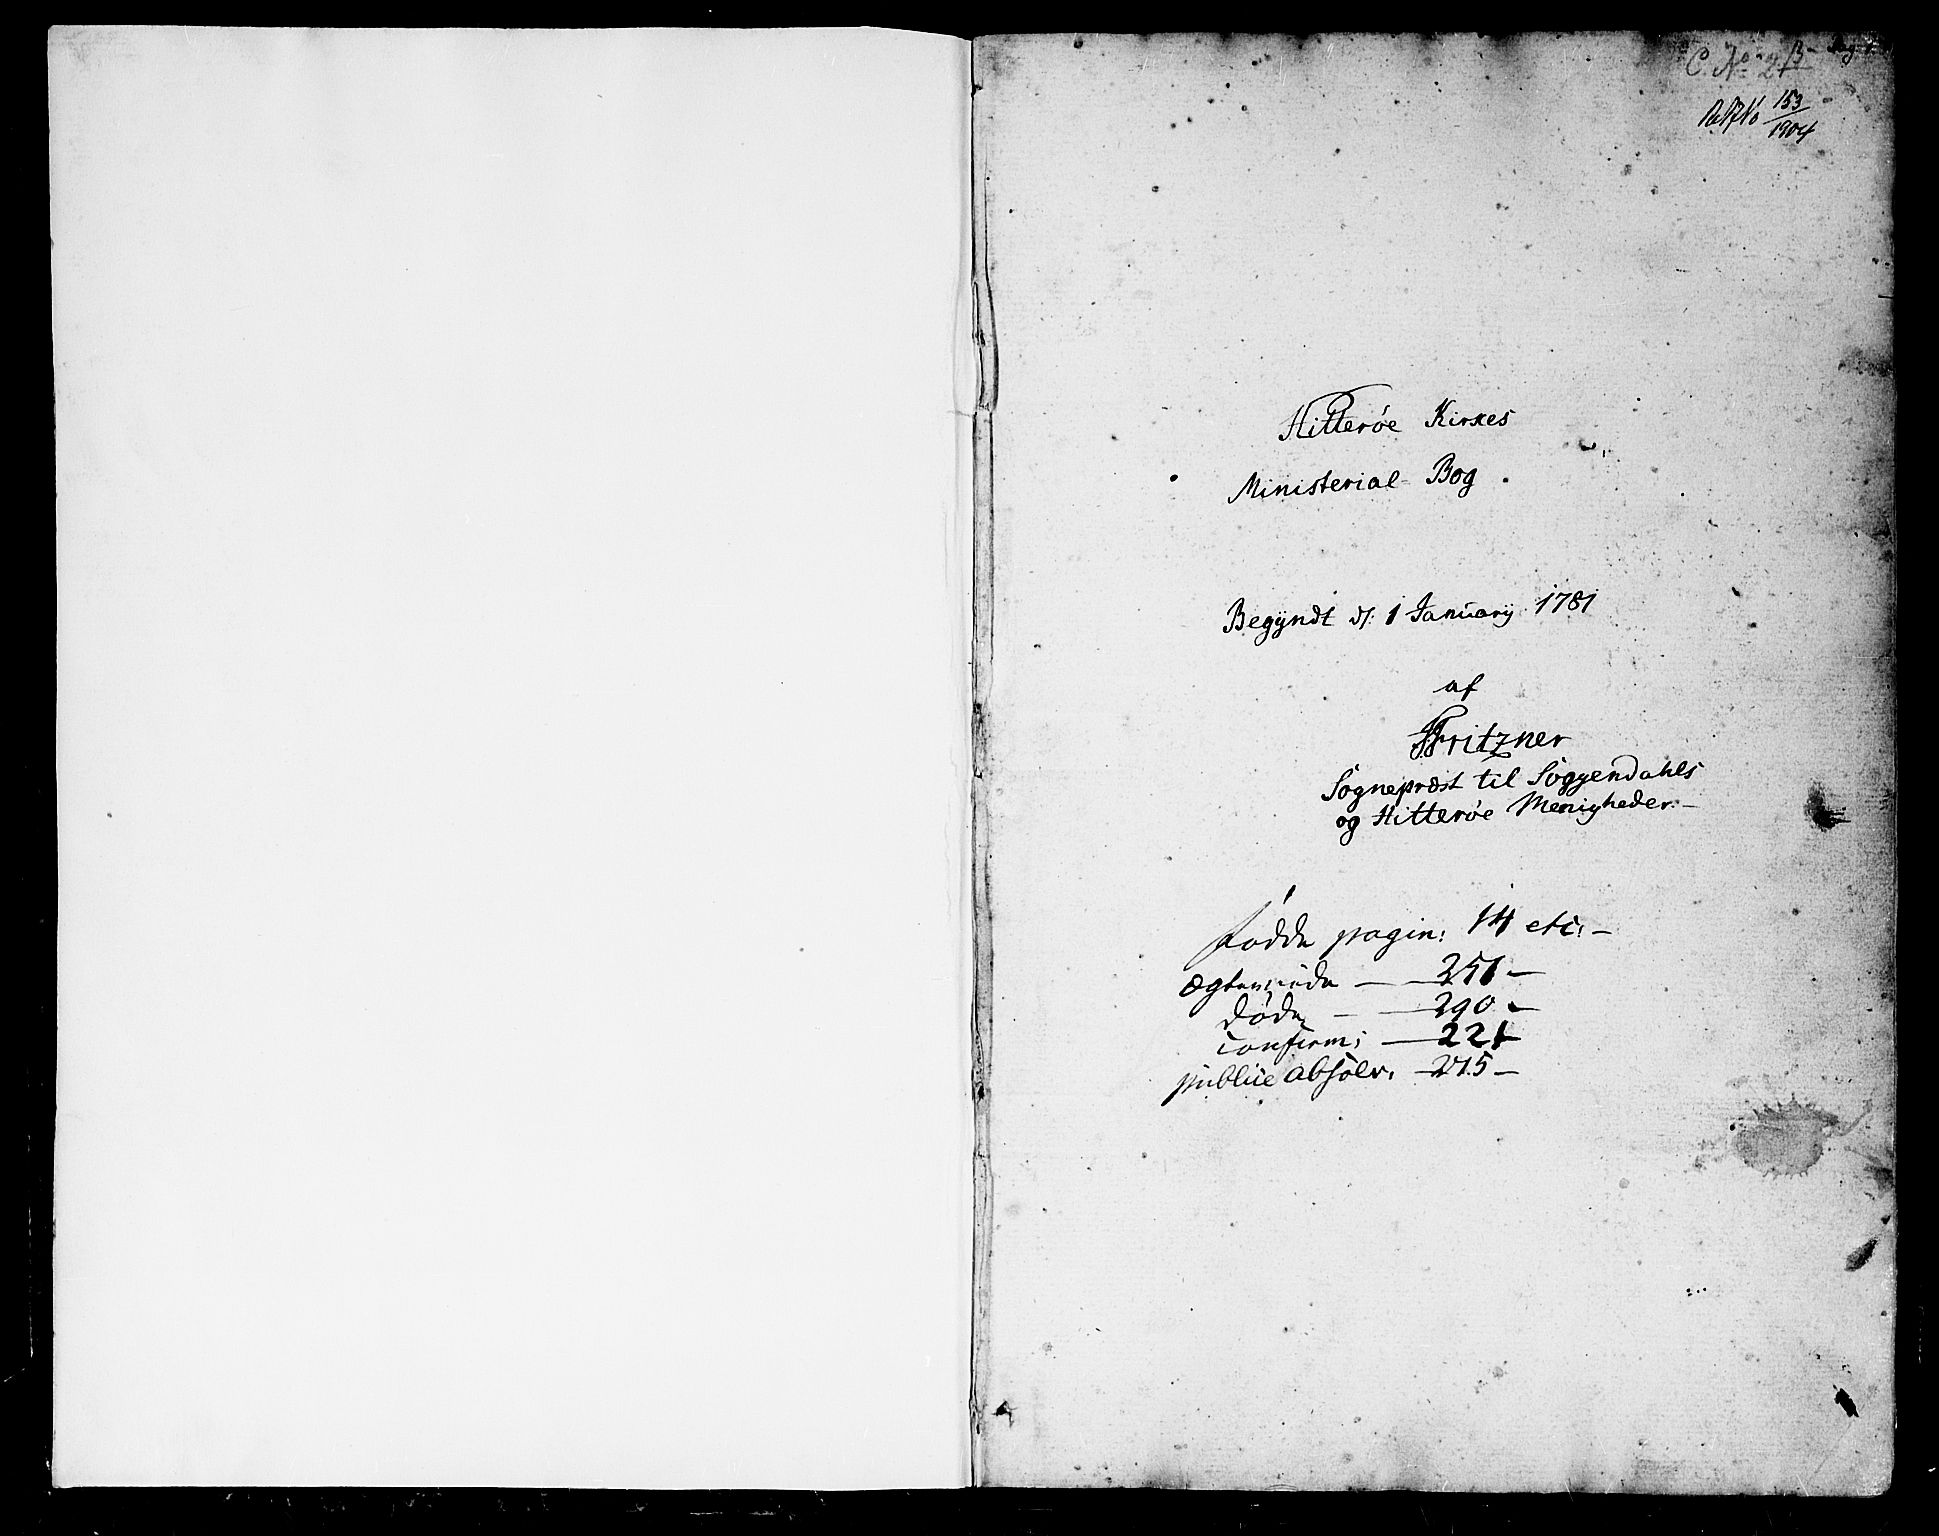 C. No 2
153
1904
Hitterøe Kirkes
Ministerial Bog.
Begyndt d: 1 January 1781
af
Fritzner
Sognepræst til Soggendahls
og Hitterøe Menigheder. –
Fødde pagin: 14 etc: –
Ægteviede — 251 –
Døde — 290 –
confirm: — 221
publice absolv. 215 –